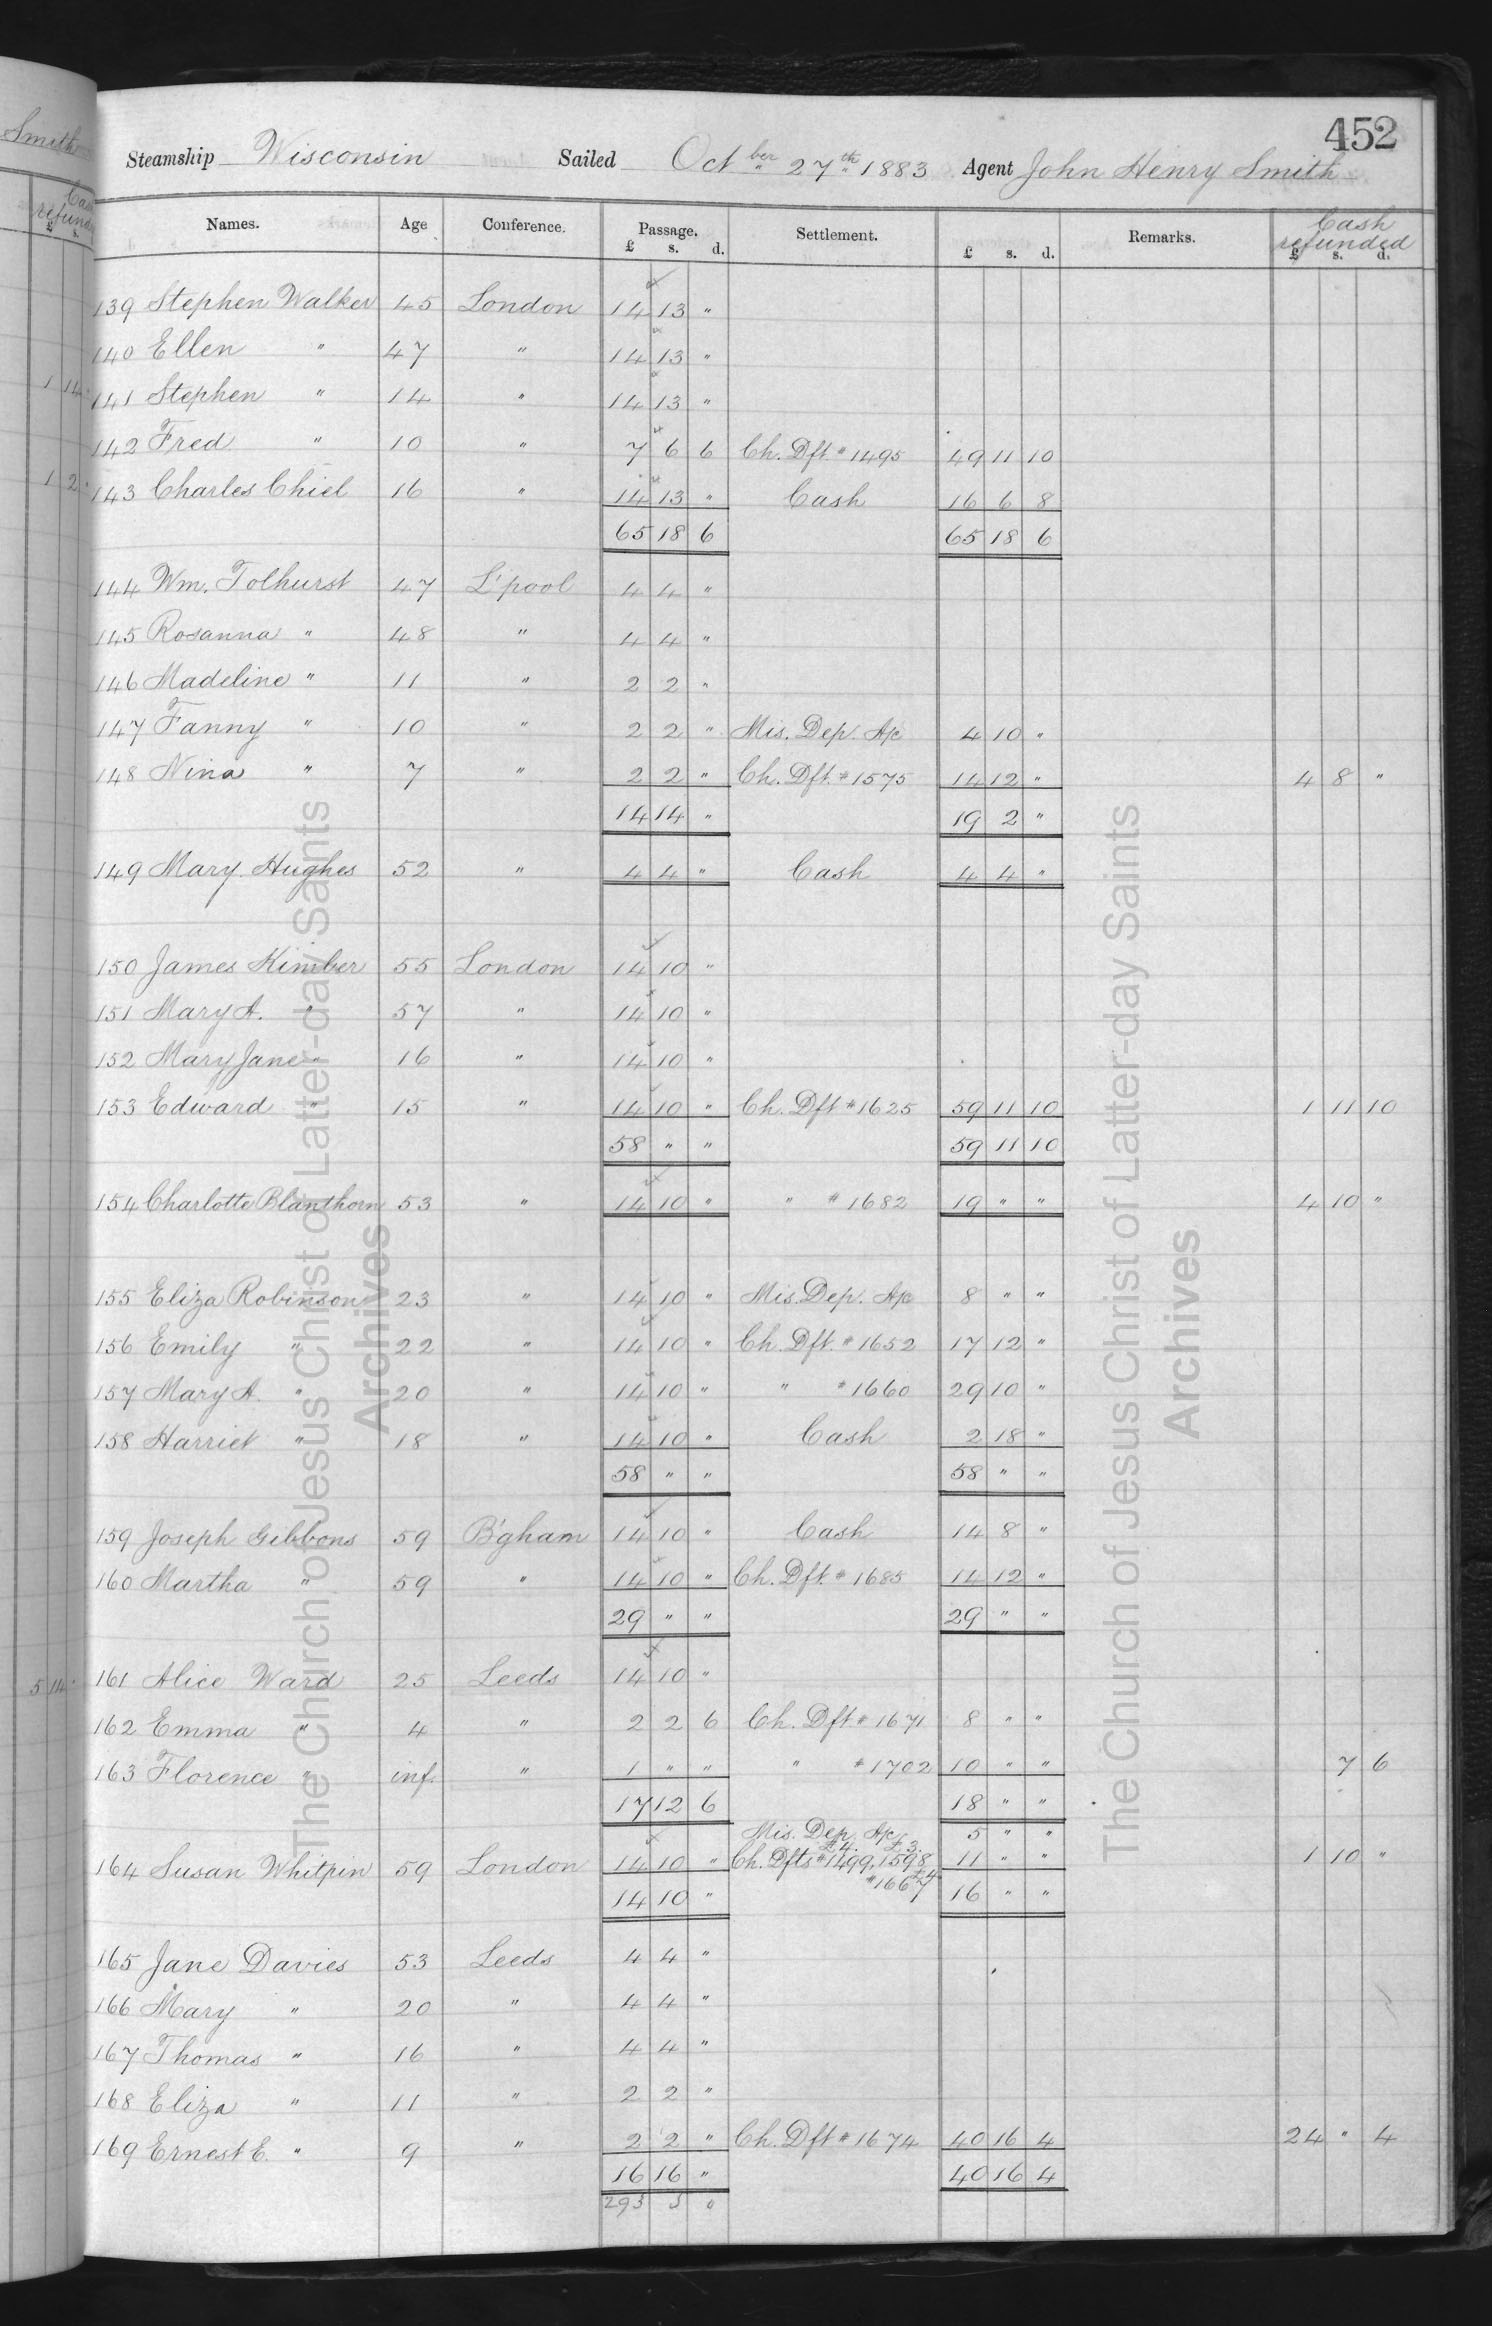 452
Steamship Wisconsin Sailed Octber 27th 1883 Agent John Henry Smith
Names. Age Conference. Passage. £ s. d. Settlement. £ s. d. Remarks. Cash refunded £ s. d.
139 Stephen Walker 45 London 14 13 "
140 Ellen " 47 " 14 13 "
141 Stephen " 14 " 14 13 "
142 Fred " 10 " 7 6 6 Ch. Dft. # 1495 49 11 10
143 Charles Chiel 16 " 14 13 " Cash 16 6 8
65 18 6 65 18 6
144 Wm. Tolhurst 47 L'pool 4 4 "
145 Rosanna " 48 " 4 4 "
146 Madeline " 11 " 2 2 "
147 Fanny " 10 " 2 2 " Mis. Dep. A/c 4 10 "
148 Nina " 7 " 2 2 " Ch. Dft. # 1575 14 12 " 4 8 "
14 14 " 19 2 "
149 Mary Hughes 52 " 4 4 " Cash 4 4 "
150 James Kimber 55 London 14 10 "
151 Mary A. " 57 " 14 10 "
152 Mary Jane " 16 " 14 10 "
153 Edward " 15 " 14 10 " Ch. Dft # 1625 59 11 10 1 11 10
58 " " 59 11 10
154 Charlotte Blanthorn 53 " 14 10 " " # 1682 19 " " 4 10 "
155 Eliza Robinson 23 " 14 10 " Mis. Dep. A/c 8 " "
156 Emily " 22 " 14 10 " Ch. Dft. # 1652 17 12 "
157 Mary A. " 20 " 14 10 " " # 1660 29 10 "
158 Harriet " 18 " 14 10 " Cash 2 18 "
58 " " 58 " "
159 Joseph Gibbons 59 B'gham 14 10 " Cash 14 8 "
160 Martha " 59 " 14 10 " Ch. Dft. # 1685 14 12 "
29 " " 29 " "
161 Alice Ward 25 Leeds 14 10 "
162 Emma " 4 " 2 2 6 Ch. Dft # 1671 8 " "
163 Florence " inf. " 1 " " " # 1702 10 " " 7 6
17 12 6 18 " "
Mis. Dep. A/c 5 " "
£4. £3.
164 Susan Whitpin 59 London 14 10 " Ch. Dfts # 1499, 1598 11 " " 1 10 "
£4
# 1667
14 10 " 16 " "
165 Jane Davies 53 Leeds 4 4 "
166 Mary " 20 " 4 4 "
167 Thomas " 16 " 4 4 "
168 Eliza " 11 " 2 2 "
169 Ernest E. " 9 " 2 2 " Ch. Dft # 1674 40 16 4 24 " 4
16 16 " 40 16 4
293 5 0
Smith
Cash
refund
£ s.
1 14
1 2
5 14
The Church of Jesus Christ of Latter-day Saints
Archives
The Church of Jesus Christ of Latter-day Saints
Archives